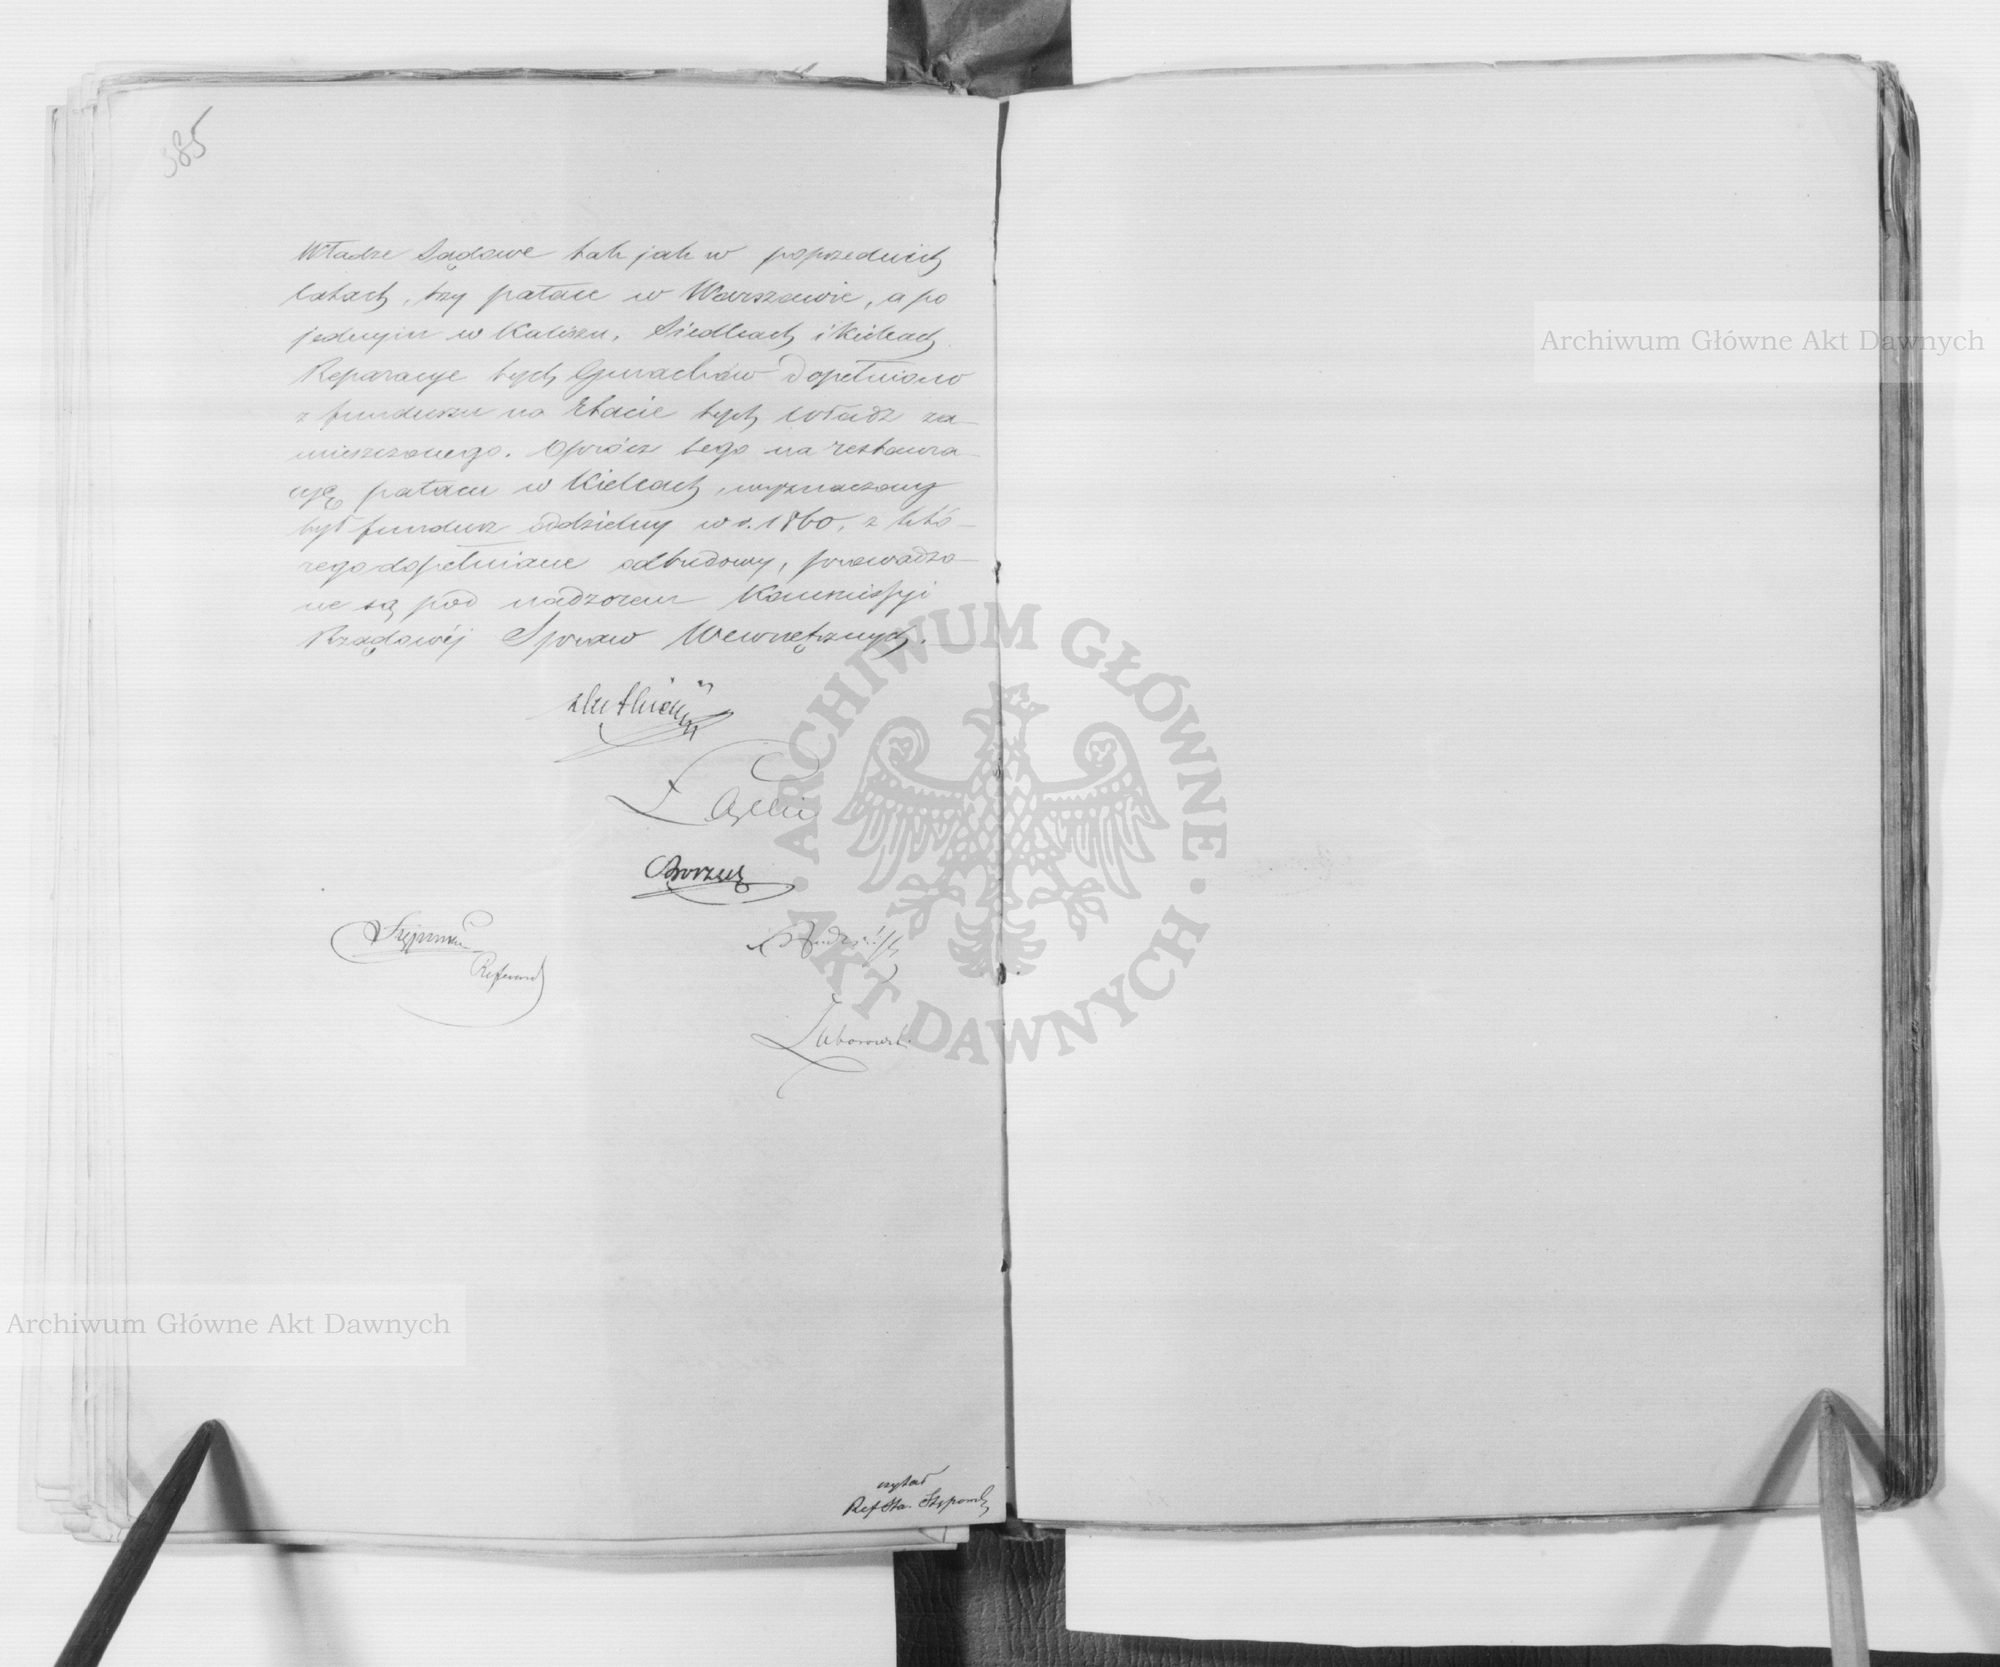 385
Władze Sądowe tak jak w poprzednich
latach, trzy pałace w Warszawie, a po
jednym w Kaliszu, Siedlcach i Kielcach.
Reparacye tych Gmachów dopełniono
z funduszu na Etacie tych władz za-
mieszczonego. Oprócz tego na restaura-
cyę pałacu w Kielcach, wyznaczony
był fundusz oddzielny w r. 1860, z któ-
rego dopełniane odbudowy, prowadzo-
ne są pod nadzorem Kommissyi
Rządowéj Spraw Wewnętrznych.
czytał
Archiwum Główne Akt Dawnych
Archiwum Główne Akt Dawnych
ARCHIWUM GŁÓWNE AKT DAWNYCH